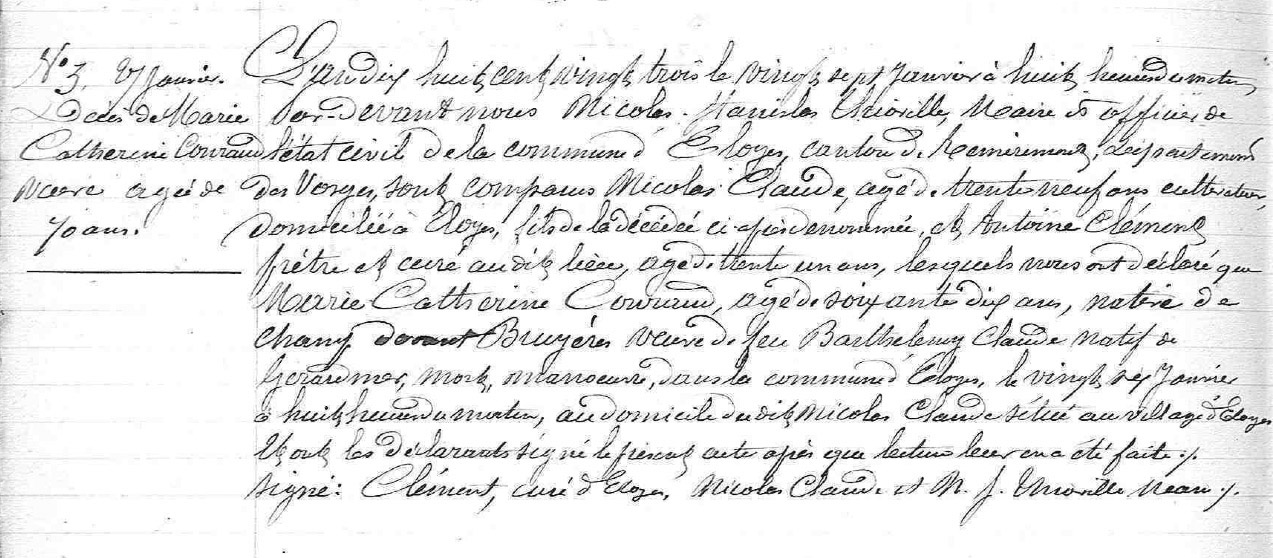 N° 3, 27 Janvier.
Décès de Marie
Catherine Conraud
veuve agée de
70 ans.
L'an dix huit cent vingt trois le vingt sept Janvier à huit heures du matin,
par-devant nous Nicolas Stanislas Maire et officier de
l'état civil de la commune d'Eloyes, canton de Remiremont, département
des Vosges, sont comparus Nicolas Claude, agé de trente neuf ans cultivateur,
domicilié à Eloyes, fils de la décédée ci-après dénommée, et Antoine Clément
prêtre et curé au dit lieu, agé de trente un ans, lesquels nous ont déclaré que
Marie Catherine Conraud, agé de soixante dix ans, native de
Champ devant Bruyères veuve de feu Barthelemy Claude natif de
Gérardmer, mort, manoeuvre, dans la commune d'Eloyes, le vingt sept Janvier
à huit heures du matin, au domicile du dit Nicolas Claude situé au village d'Eloyes
Et ont les déclarants signé le présent acte après que lecture leur en a été faite ./.
Signé : Clément, curé d'Eloyes, Nicolas Claude et N. S.